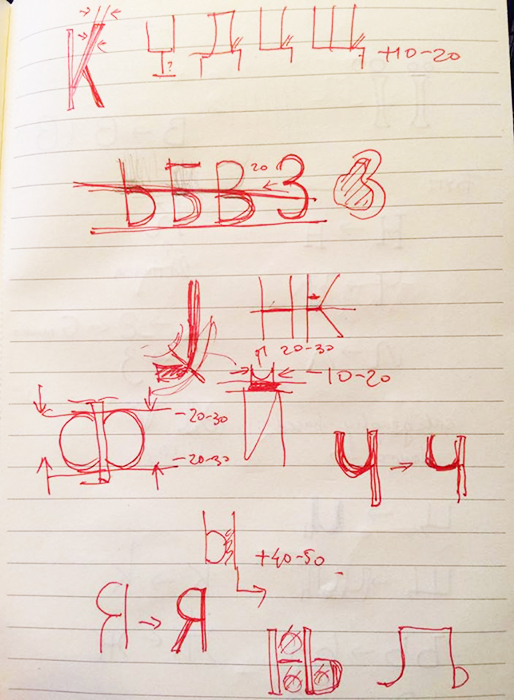 К Ц Д Ц Щ +10-20
?
Ь Б В 20 З З
Н К
20-30
-10-20
Й
Ф -20-30
-20-30
Ч → Ч
Ы +40-50
Я → Я
Њ Љ